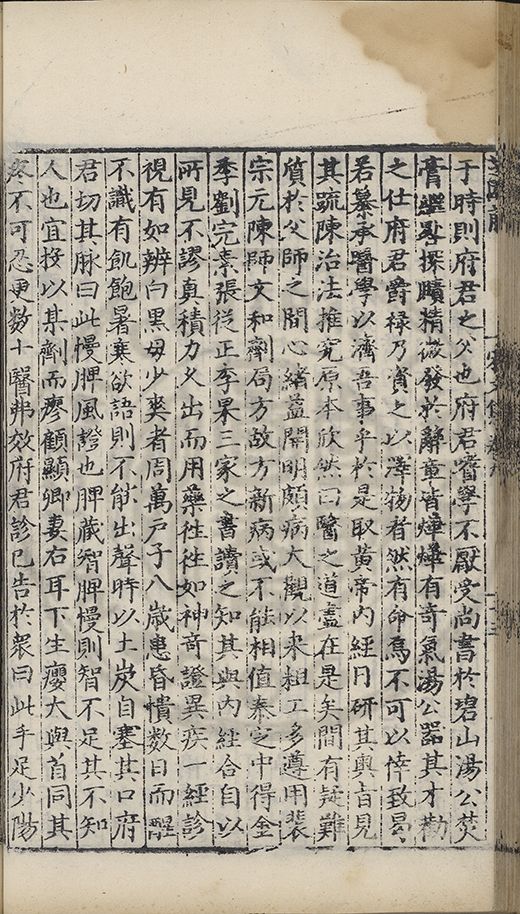 于時則府君之父也府君嗜學不厭受尚書於碧山湯公焚
膏繼晷探賾精微發於辭章皆燁燁有奇氣湯公器其才勸
之仕府君曰爵祿乃資之以澤物者然有命焉不可以倖致曷
若纂承醫學以濟吾事乎於是取黃帝內經日研其輿旨見
其疏陳治法推究原本欣然曰醫之道盡在是矣間有疑難
質於父師之間心緒益開明頗病大觀以来粗工多遵用裴
宗元陳師文和劑局方故方新病或不能相值泰定中得金
季劉完素張從正李杲三家之書讀之知其與內經合自以
所見不謬真積力久出而用藥往往如神奇證異疾一經診
視有如辨白黑毋少爽者周萬戶子八歲患昏憒数日而醒
不識有飢飽暑寒欲語則不能出聲時以土炭自塞其口府
君切其脉曰此慢脾風證也脾藏智脾慢則智不足其不知
人也宜投以某劑而瘳顧顯卿妻右耳下生癭大與首同其
疼不可忍更数十醫弗效府君診已告於衆曰此手足少陽